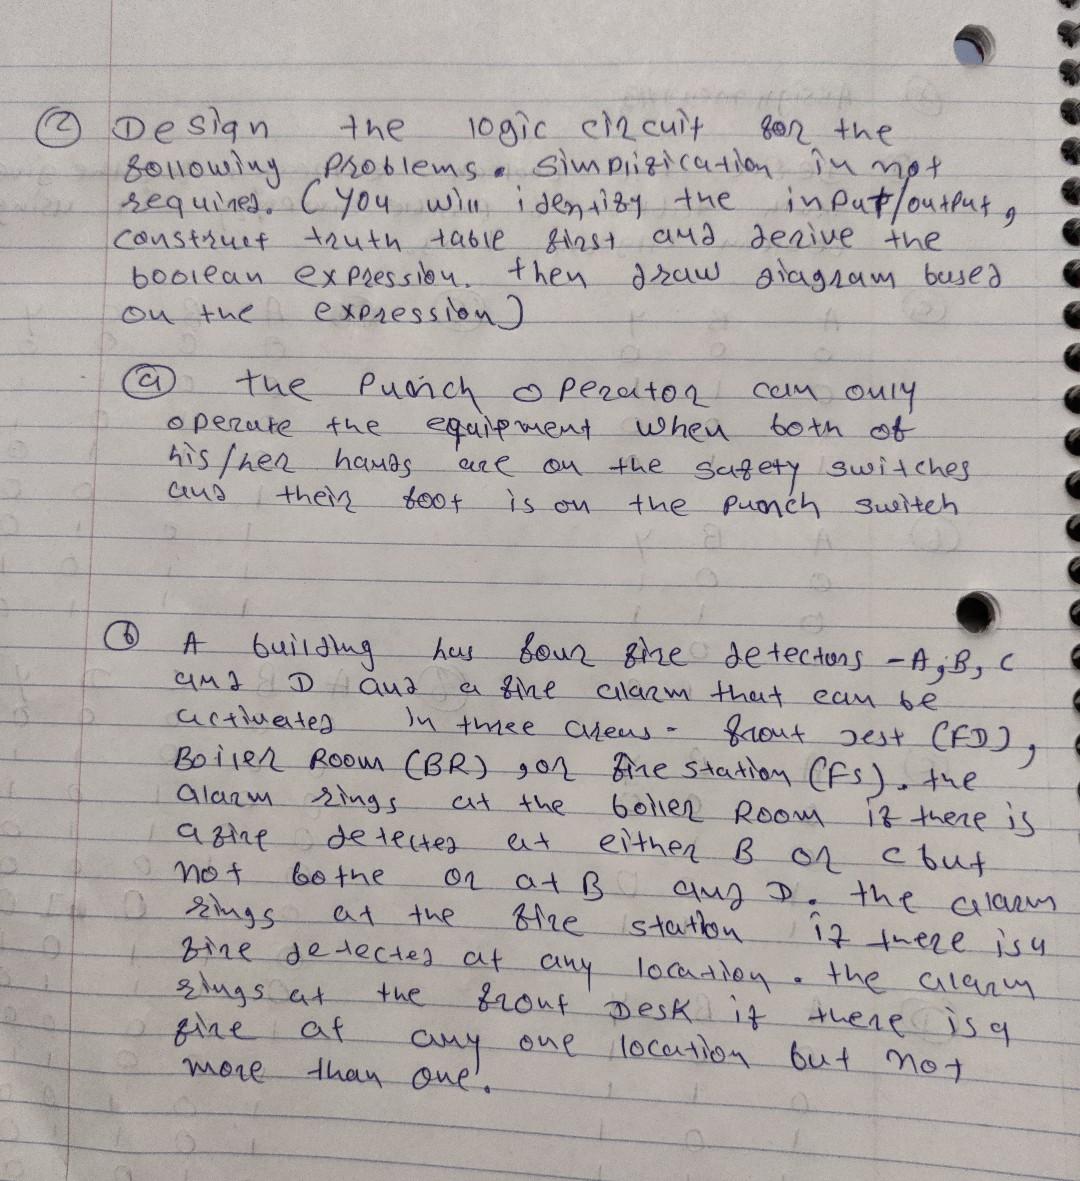 ② Design the logic circuit for the
following problems. Simplification in not
required. (You will identify the input/output,
construct truth table first and derive the
boolean expression. then draw diagram based
on the expression)
ⓐ the Punch operator can only
operate the equipment when both of
his/her hands are on the safety switches
and their foot is on the punch switch
ⓑ A building has four fire detectors - A, B, C
and D and a fire alarm that can be
activated in three areas - front dest (FD),
Boiler Room (BR), or fire station (FS). the
alarm rings at the boiler Room if there is
a fire detected at either B or C but
not bothe or at B and D. the alarm
rings at the fire station if there is a
fire detected at any location. the alarm
rings at the front Desk if there is a
fire at any one location but not
more than one.